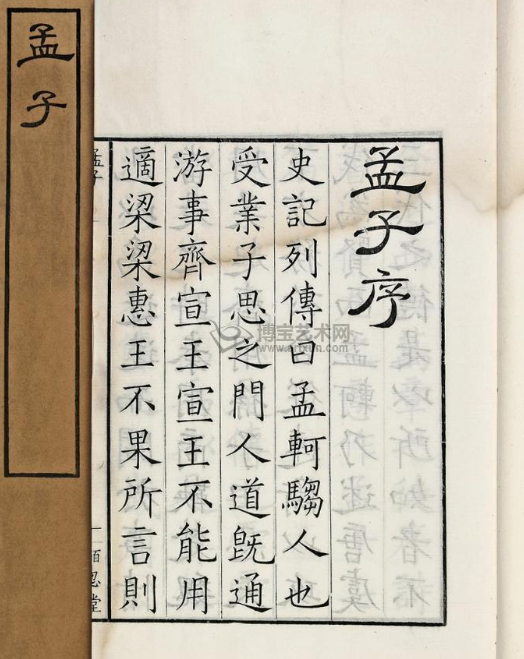 孟子
孟子序
史記列傳曰孟軻騶人也
受業子思之門人道旣通
游事齊宣王宣王不能用
適梁梁惠王不果所言則
孟子
一
博宝艺术网